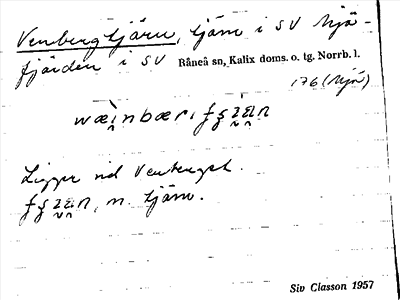 Venbergtjärn, tjärn i SV Mjö-
fjärden i SV Råneå sn, Kalix doms. o. tg. Norrb. l.
176 (Mjö)
Ligger vid Venberget.
n. tjärn.
Siv Classon 1957